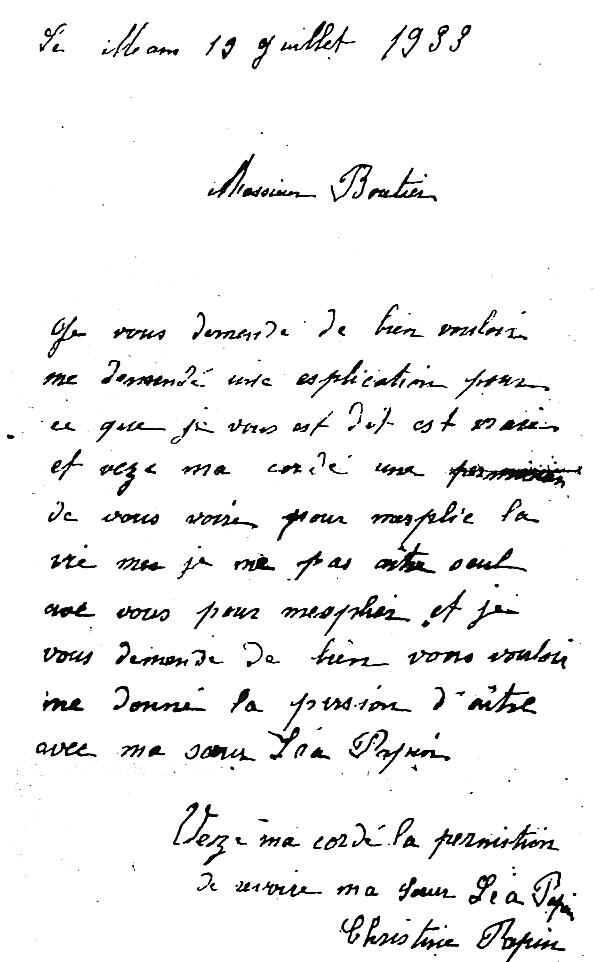 Le Mans 19 Juillet 1933
Monsieur Boutier
Je vous demende de bien vouloir
me demendé une esplication pour
ce que je vous est dit est vraie
et veze ma cordé une
de vous voire pour mesplic la
vie mes je me pas aitre seul
ave vous pour mesplier et je
vous demende de bien vous vouloir
me donné la persion d'aitre
avec ma sœur Léa Papin
Veze ma cordé la permistion
de revoire ma sœur Léa Papin
Christine Papin